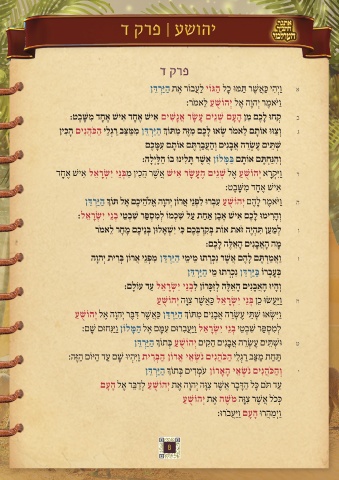 יהושע | פרק ד
פרק ד
א וַיְהִי כַּאֲשֶׁר תַּמּוּ כָל הַגּוֹי לַעֲבוֹר אֶת הַיַּרְדֵּן
וַיֹּאמֶר יְהוָה אֶל יְהוֹשֻׁעַ לֵאמֹר:
ב קְחוּ לָכֶם מִן הָעָם שְׁנֵים עָשָׂר אֲנָשִׁים אִישׁ אֶחָד אִישׁ אֶחָד מִשָּׁבֶט:
ג וְצַוּוּ אוֹתָם לֵאמֹר שְׂאוּ לָכֶם מִזֶּה מִתּוֹךְ הַיַּרְדֵּן מִמַּצַּב רַגְלֵי הַכֹּהֲנִים הָכִין
שְׁתֵּים עֶשְׂרֵה אֲבָנִים וְהַעֲבַרְתֶּם אוֹתָם עִמָּכֶם
וְהִנַּחְתֶּם אוֹתָם בַּמָּלוֹן אֲשֶׁר תָּלִינוּ בוֹ הַלָּיְלָה:
ד וַיִּקְרָא יְהוֹשֻׁעַ אֶל שְׁנֵים הֶעָשָׂר אִישׁ אֲשֶׁר הֵכִין מִבְּנֵי יִשְׂרָאֵל אִישׁ אֶחָד
אִישׁ אֶחָד מִשָּׁבֶט:
ה וַיֹּאמֶר לָהֶם יְהוֹשֻׁעַ עִבְרוּ לִפְנֵי אֲרוֹן יְהוָה אֱלֹהֵיכֶם אֶל תּוֹךְ הַיַּרְדֵּן
וְהָרִימוּ לָכֶם אִישׁ אֶבֶן אַחַת עַל שִׁכְמוֹ לְמִסְפַּר שִׁבְטֵי בְנֵי יִשְׂרָאֵל:
ו לְמַעַן תִּהְיֶה זֹאת אוֹת בְּקִרְבְּכֶם כִּי יִשְׁאָלוּן בְּנֵיכֶם מָחָר לֵאמֹר
מָה הָאֲבָנִים הָאֵלֶּה לָכֶם:
ז וַאֲמַרְתֶּם לָהֶם אֲשֶׁר נִכְרְתוּ מֵימֵי הַיַּרְדֵּן מִפְּנֵי אֲרוֹן בְּרִית יְהוָה
בְּעָבְרוֹ בַּיַּרְדֵּן נִכְרְתוּ מֵי הַיַּרְדֵּן
וְהָיוּ הָאֲבָנִים הָאֵלֶּה לְזִכָּרוֹן לִבְנֵי יִשְׂרָאֵל עַד עוֹלָם:
ח וַיַּעֲשׂוּ כֵן בְּנֵי יִשְׂרָאֵל כַּאֲשֶׁר צִוָּה יְהוֹשֻׁעַ
וַיִּשְׂאוּ שְׁתֵּי עֶשְׂרֵה אֲבָנִים מִתּוֹךְ הַיַּרְדֵּן כַּאֲשֶׁר דִּבֶּר יְהוָה אֶל יְהוֹשֻׁעַ
לְמִסְפַּר שִׁבְטֵי בְנֵי יִשְׂרָאֵל וַיַּעֲבִרוּם עִמָּם אֶל הַמָּלוֹן וַיַּנִּחוּם שָׁם:
ט וּשְׁתֵּים עֶשְׂרֵה אֲבָנִים הֵקִים יְהוֹשֻׁעַ בְּתוֹךְ הַיַּרְדֵּן
תַּחַת מַצַּב רַגְלֵי הַכֹּהֲנִים נֹשְׂאֵי אֲרוֹן הַבְּרִית וַיִּהְיוּ שָׁם עַד הַיּוֹם הַזֶּה:
י וְהַכֹּהֲנִים נֹשְׂאֵי הָאָרוֹן עֹמְדִים בְּתוֹךְ הַיַּרְדֵּן
עַד תֹּם כָּל הַדָּבָר אֲשֶׁר צִוָּה יְהוָה אֶת יְהוֹשֻׁעַ לְדַבֵּר אֶל הָעָם
כְּכֹל אֲשֶׁר צִוָּה מֹשֶׁה אֶת יְהוֹשֻׁעַ
וַיְמַהֲרוּ הָעָם וַיַּעֲבֹרוּ:
8